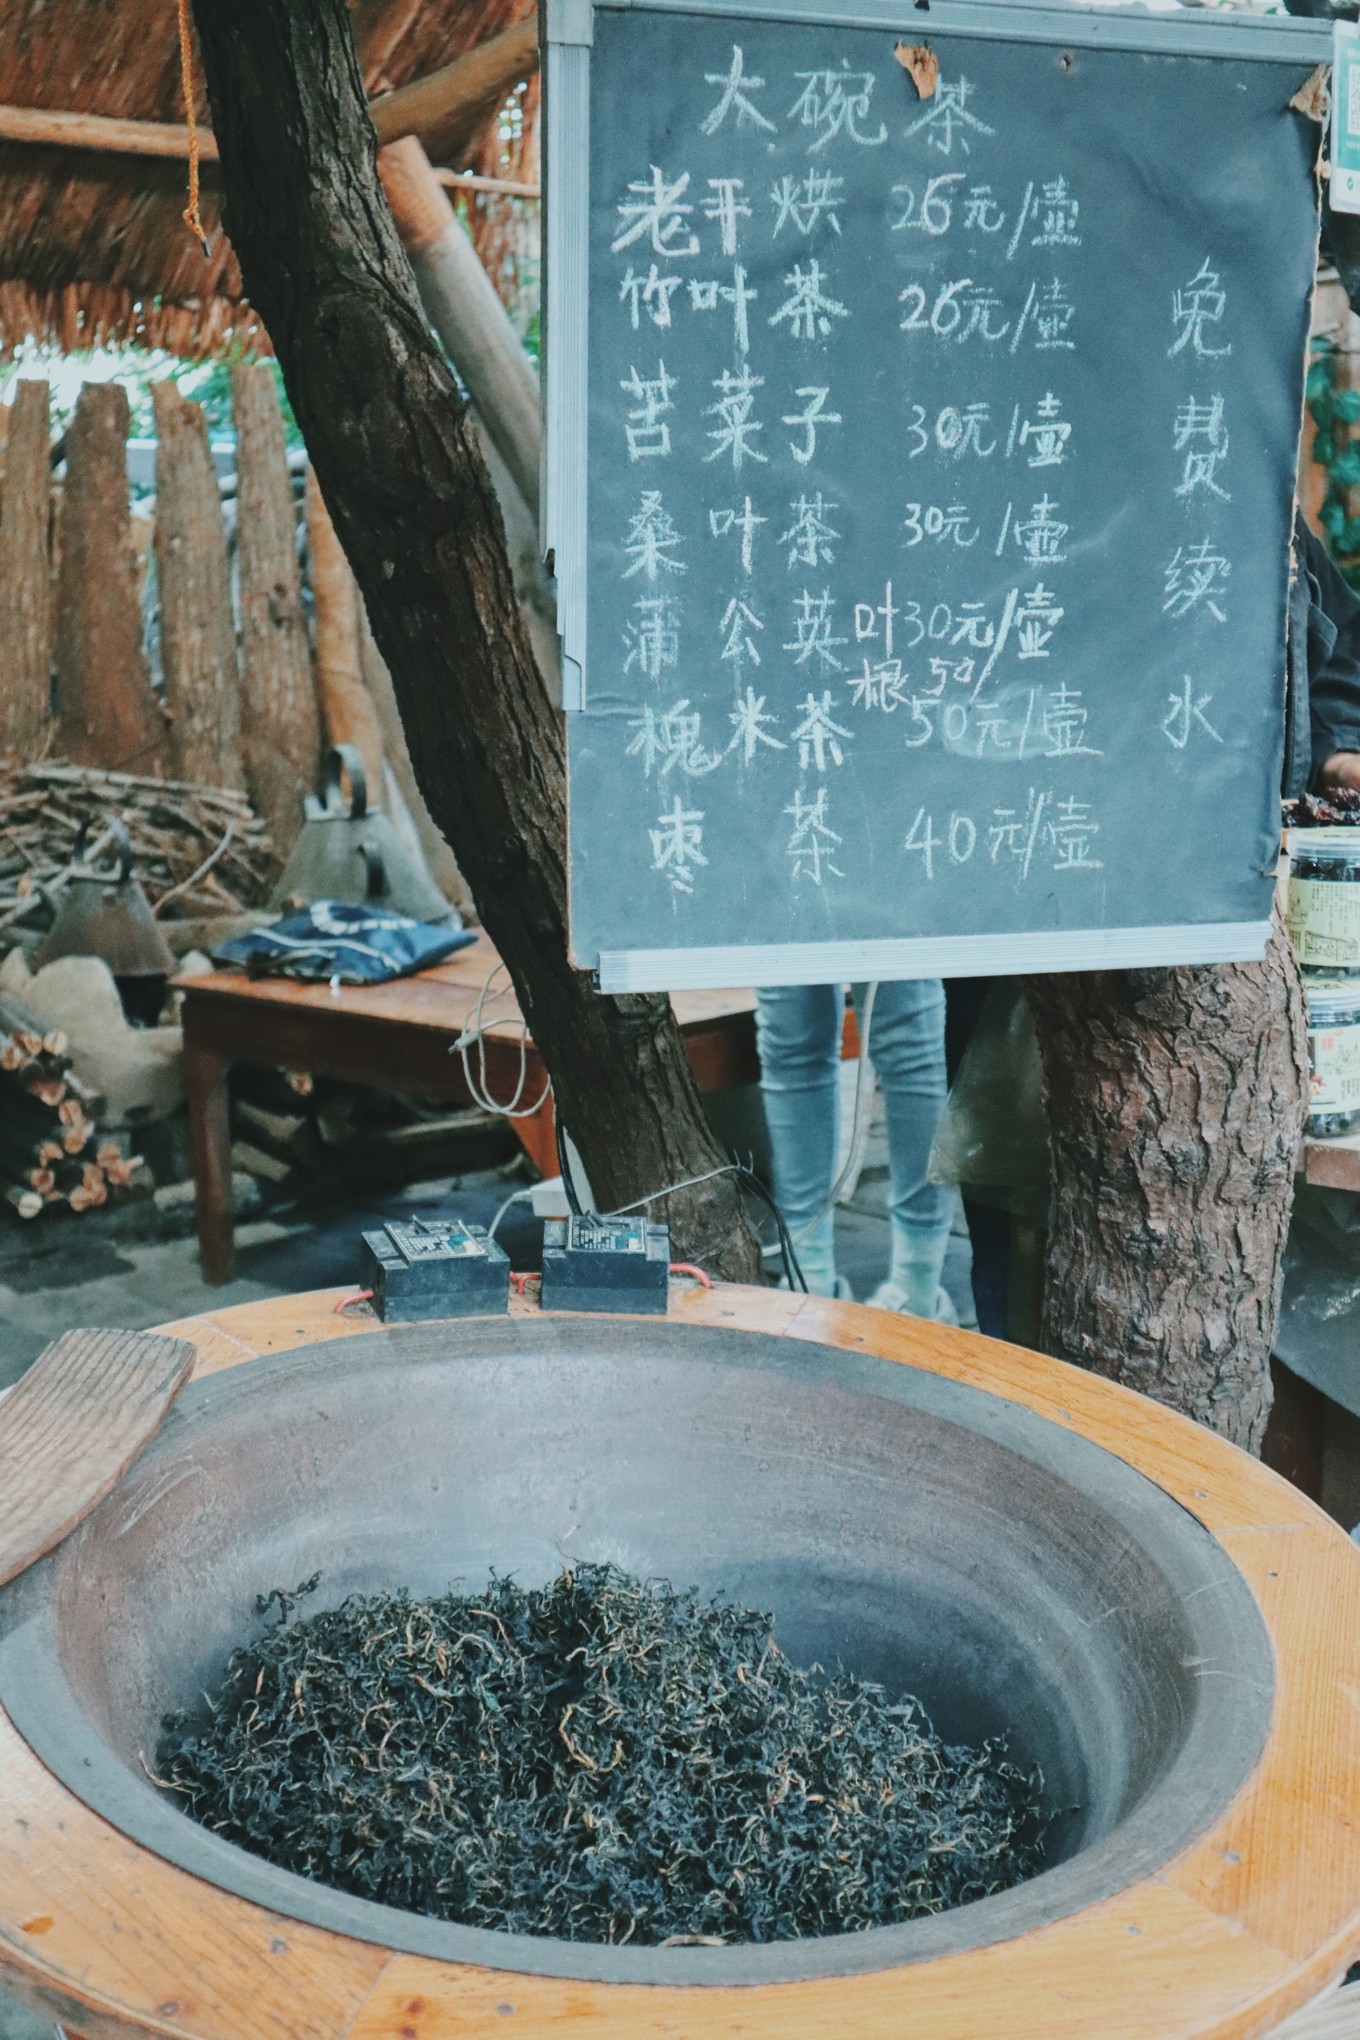 大碗茶
老干烘 26元/壶
竹叶茶 26元/壶
苦菜子 30元/壶
桑叶茶 30元/壶
蒲公英 叶30元/壶
根50/
槐米茶 50元/壶
枣茶 40元/壶
免费续水